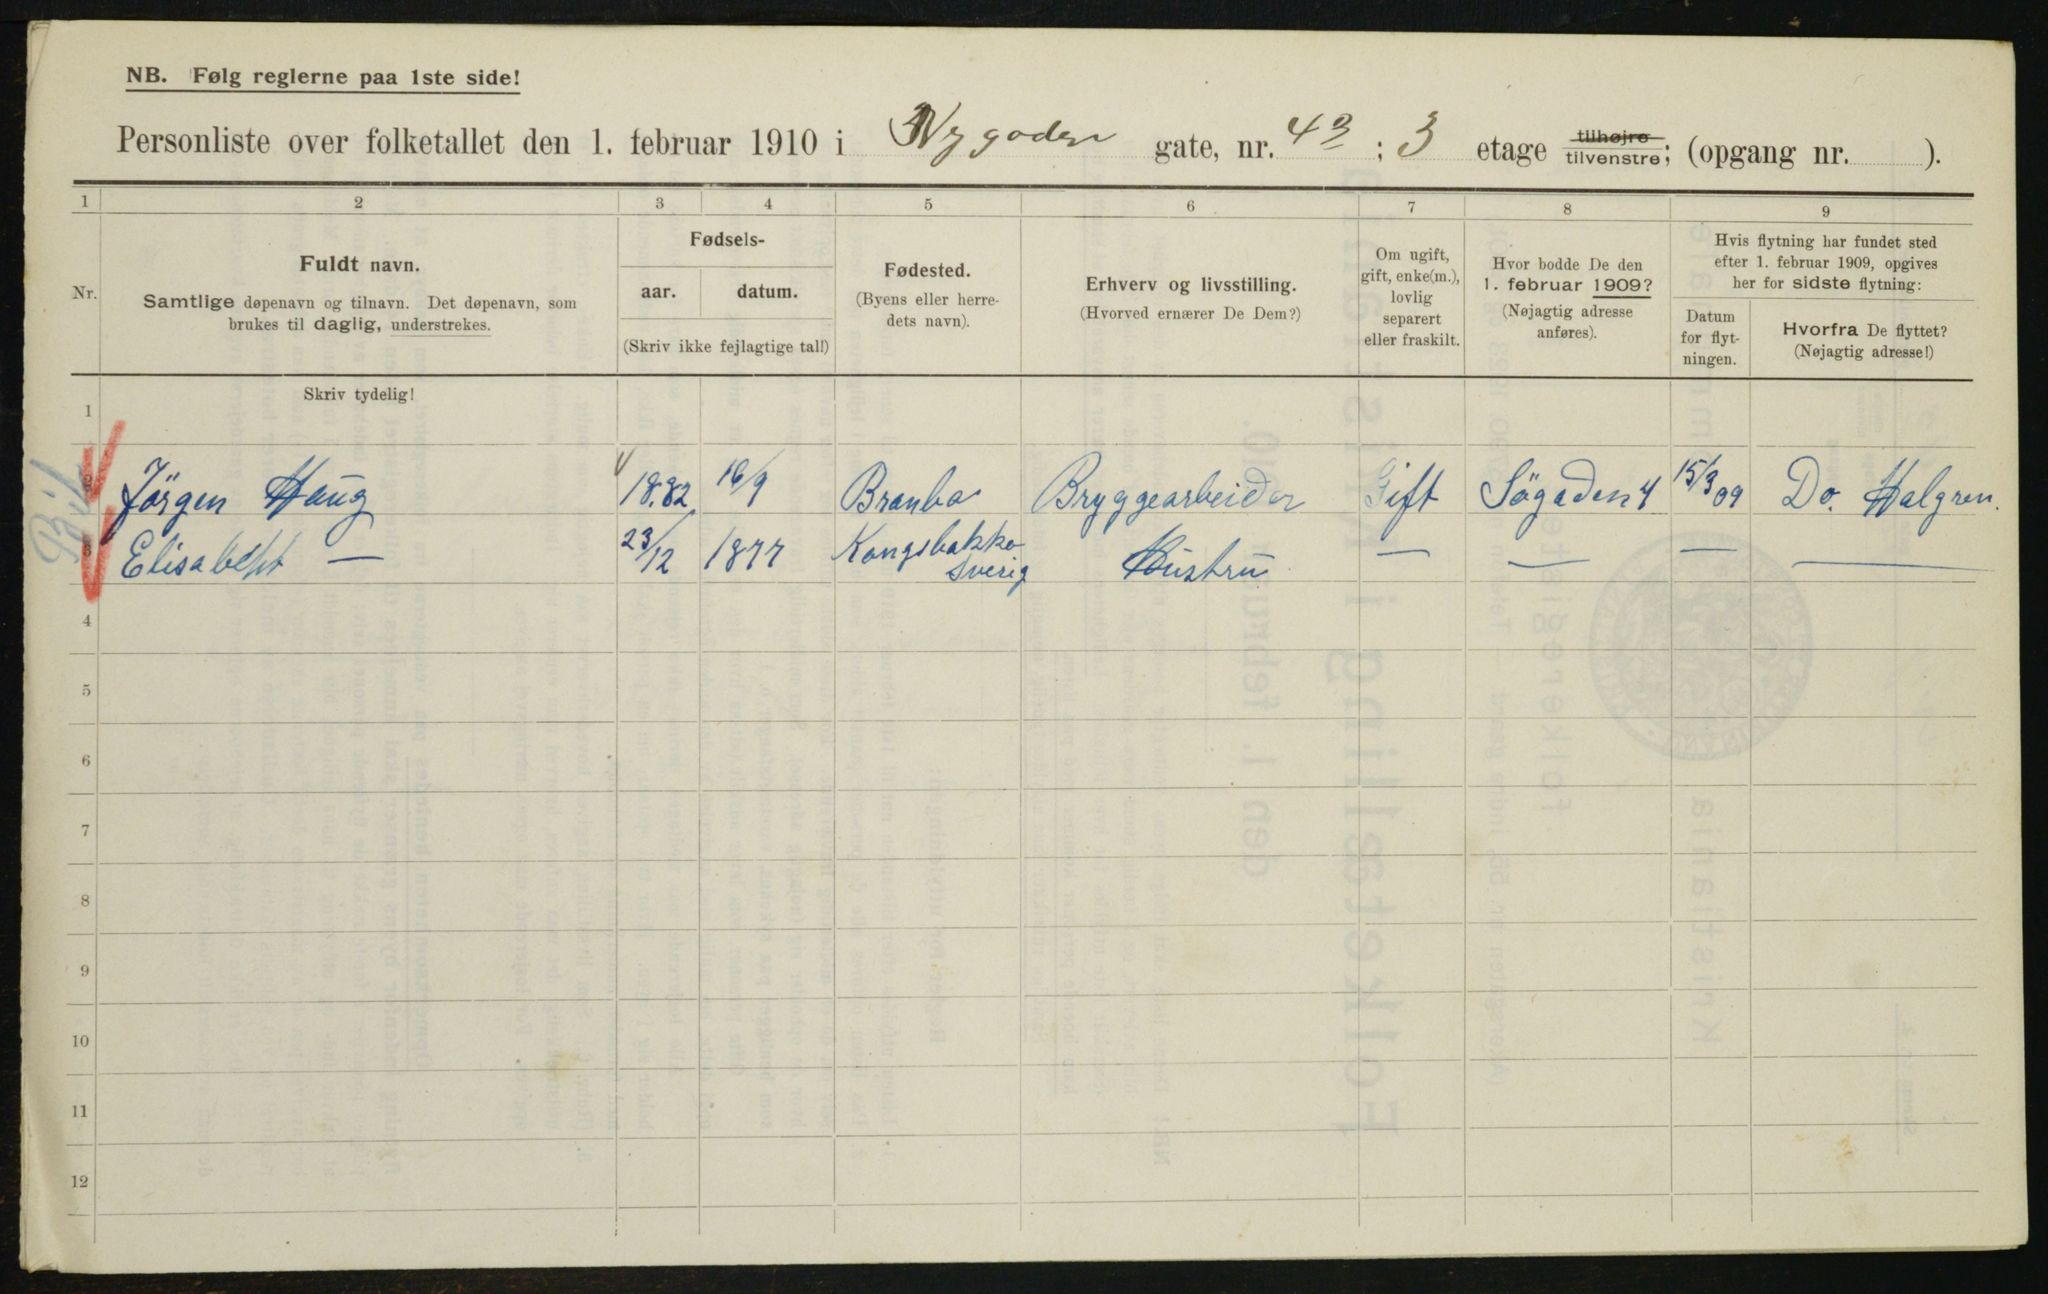 NB. Følg reglerne paa 1ste side!
Personliste over folketallet den 1. februar 1910 i Nygaden gate, nr. 43 ; 3 etage tilhøjre tilvenstre; (opgang nr. ).
1 2 3 4 5 6 7 8 9
Nr.
Fuldt navn.
Samtlige døpenavn og tilnavn. Det døpenavn, som
brukes til daglig, understrekes.
Fødsels-
aar. datum.
(Skriv ikke fejlagtige tal!)
Fødested.
(Byens eller herre-
dets navn).
Erhverv og livsstilling.
(Hvorved ernærer De Dem?)
Om ugift,
gift, enke(m.),
lovlig
separert
eller fraskilt.
Hvor bodde De den
1. februar 1909?
(Nøjagtig adresse
anføres).
Hvis flytning har fundet sted
efter 1. februar 1909, opgives
her for sidste flytning:
Datum
for flyt-
ningen.
Hvorfra De flyttet?
(Nøjagtig adresse!)
Skriv tydelig!
1
2 Jörgen Haug 1882 16/9 Branbo Bryggearbeider Gift Søgaden 4 15/3 09 Do. Halgren.
3 Elisabeht — 23/12 1877 Kongsbakka Sverig Hustru — — — —
4
5
6
7
8
9
10
11
12